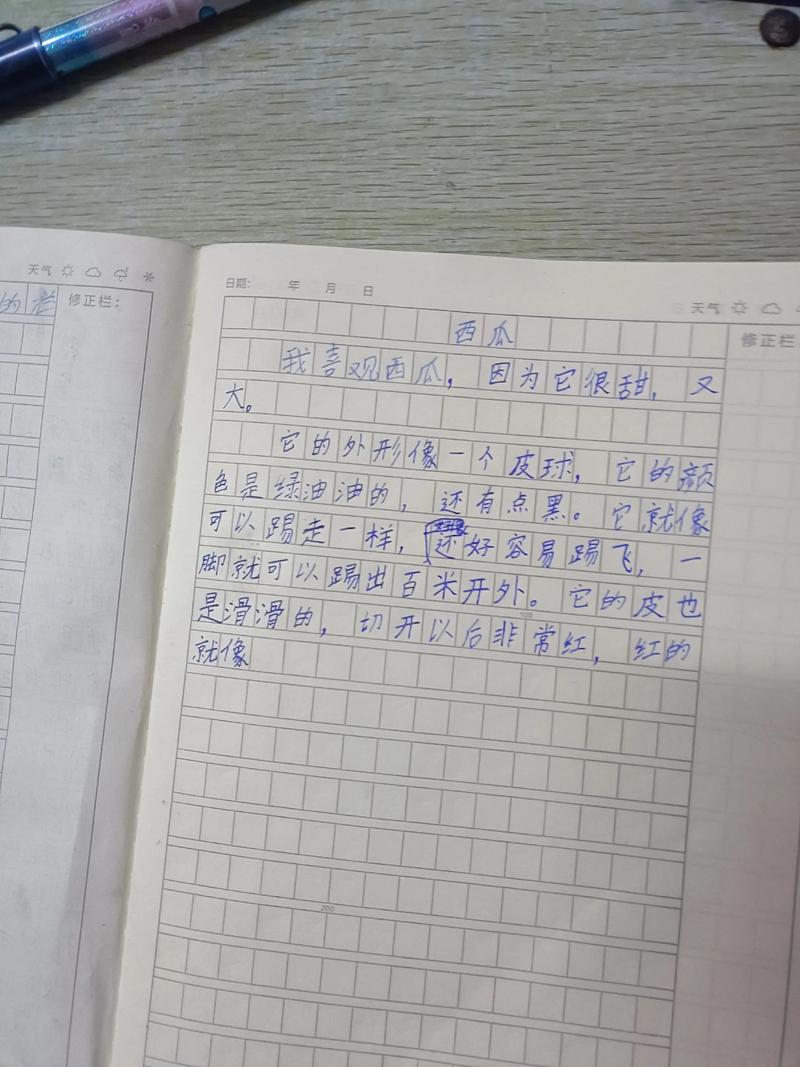 天气
的老
修正栏：
日期： 年 月 日
天气
修正栏
西瓜
我喜观西瓜，因为它很甜，又
大。
它的外形像一个皮球，它的颜
色是绿油油的，还有点黑。它就像
可以踢走一样，还好容易踢飞，一
脚就可以踢出百米开外。它的皮也
100
是滑滑的，切开以后非常红，红的
就像
200